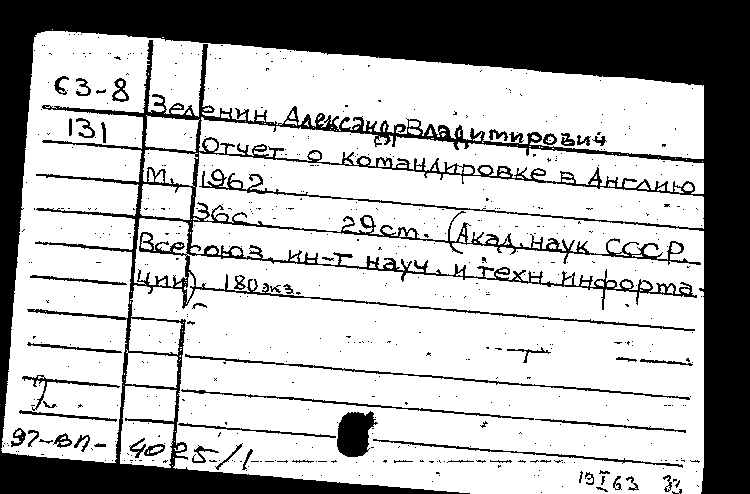 63-8
Зеленин, Александр Владимирович
131
Отчет о командировке в Англию
М., 1962.
36с. 29см. (Акад. наук СССР.
Всесоюз. ин-т науч. и техн. информа-
ции). 180 экз.
2
97-ВП-4025/1
19 I 63